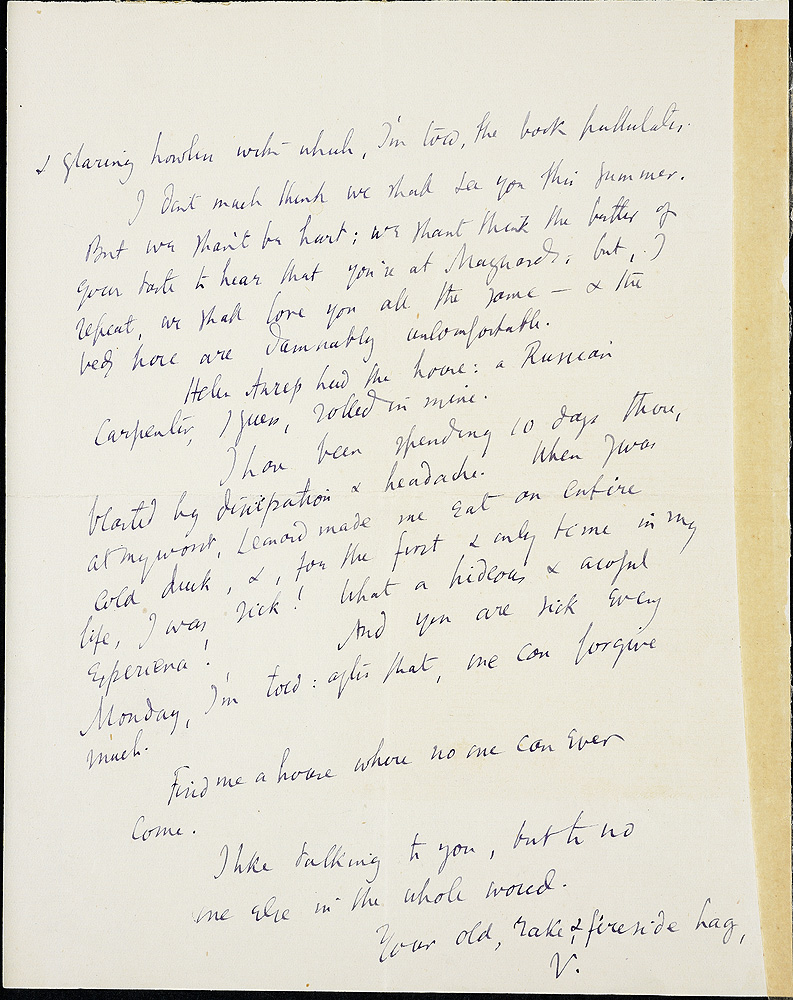 & glaring howlers with which, I'm told, the book pullulates.
I don't much think we shall see you this summer.
But we shan't be hurt; we shant think the better of
your taste to hear that you're at Maynards; but, I
repeat, we shall love you all the same — & the
beds here are damnably uncomfortable.
Helen Anrep had the house: a Russian
Carpenter, I guess, rolled in mine.
I have been spending 10 days there,
blasted by dissipation & headache. When I was
at my worst, Leonard made me eat an entire
cold duck, &, for the first & only time in my
life, I was sick! What a hideous & awful
experience! And you are sick every
Monday, I'm told: after that, one can forgive
much.
Find me a house where no one can ever
come.
I like talking to you, but to no
one else in the whole world.
Your old, rake & fireside hag,
V.